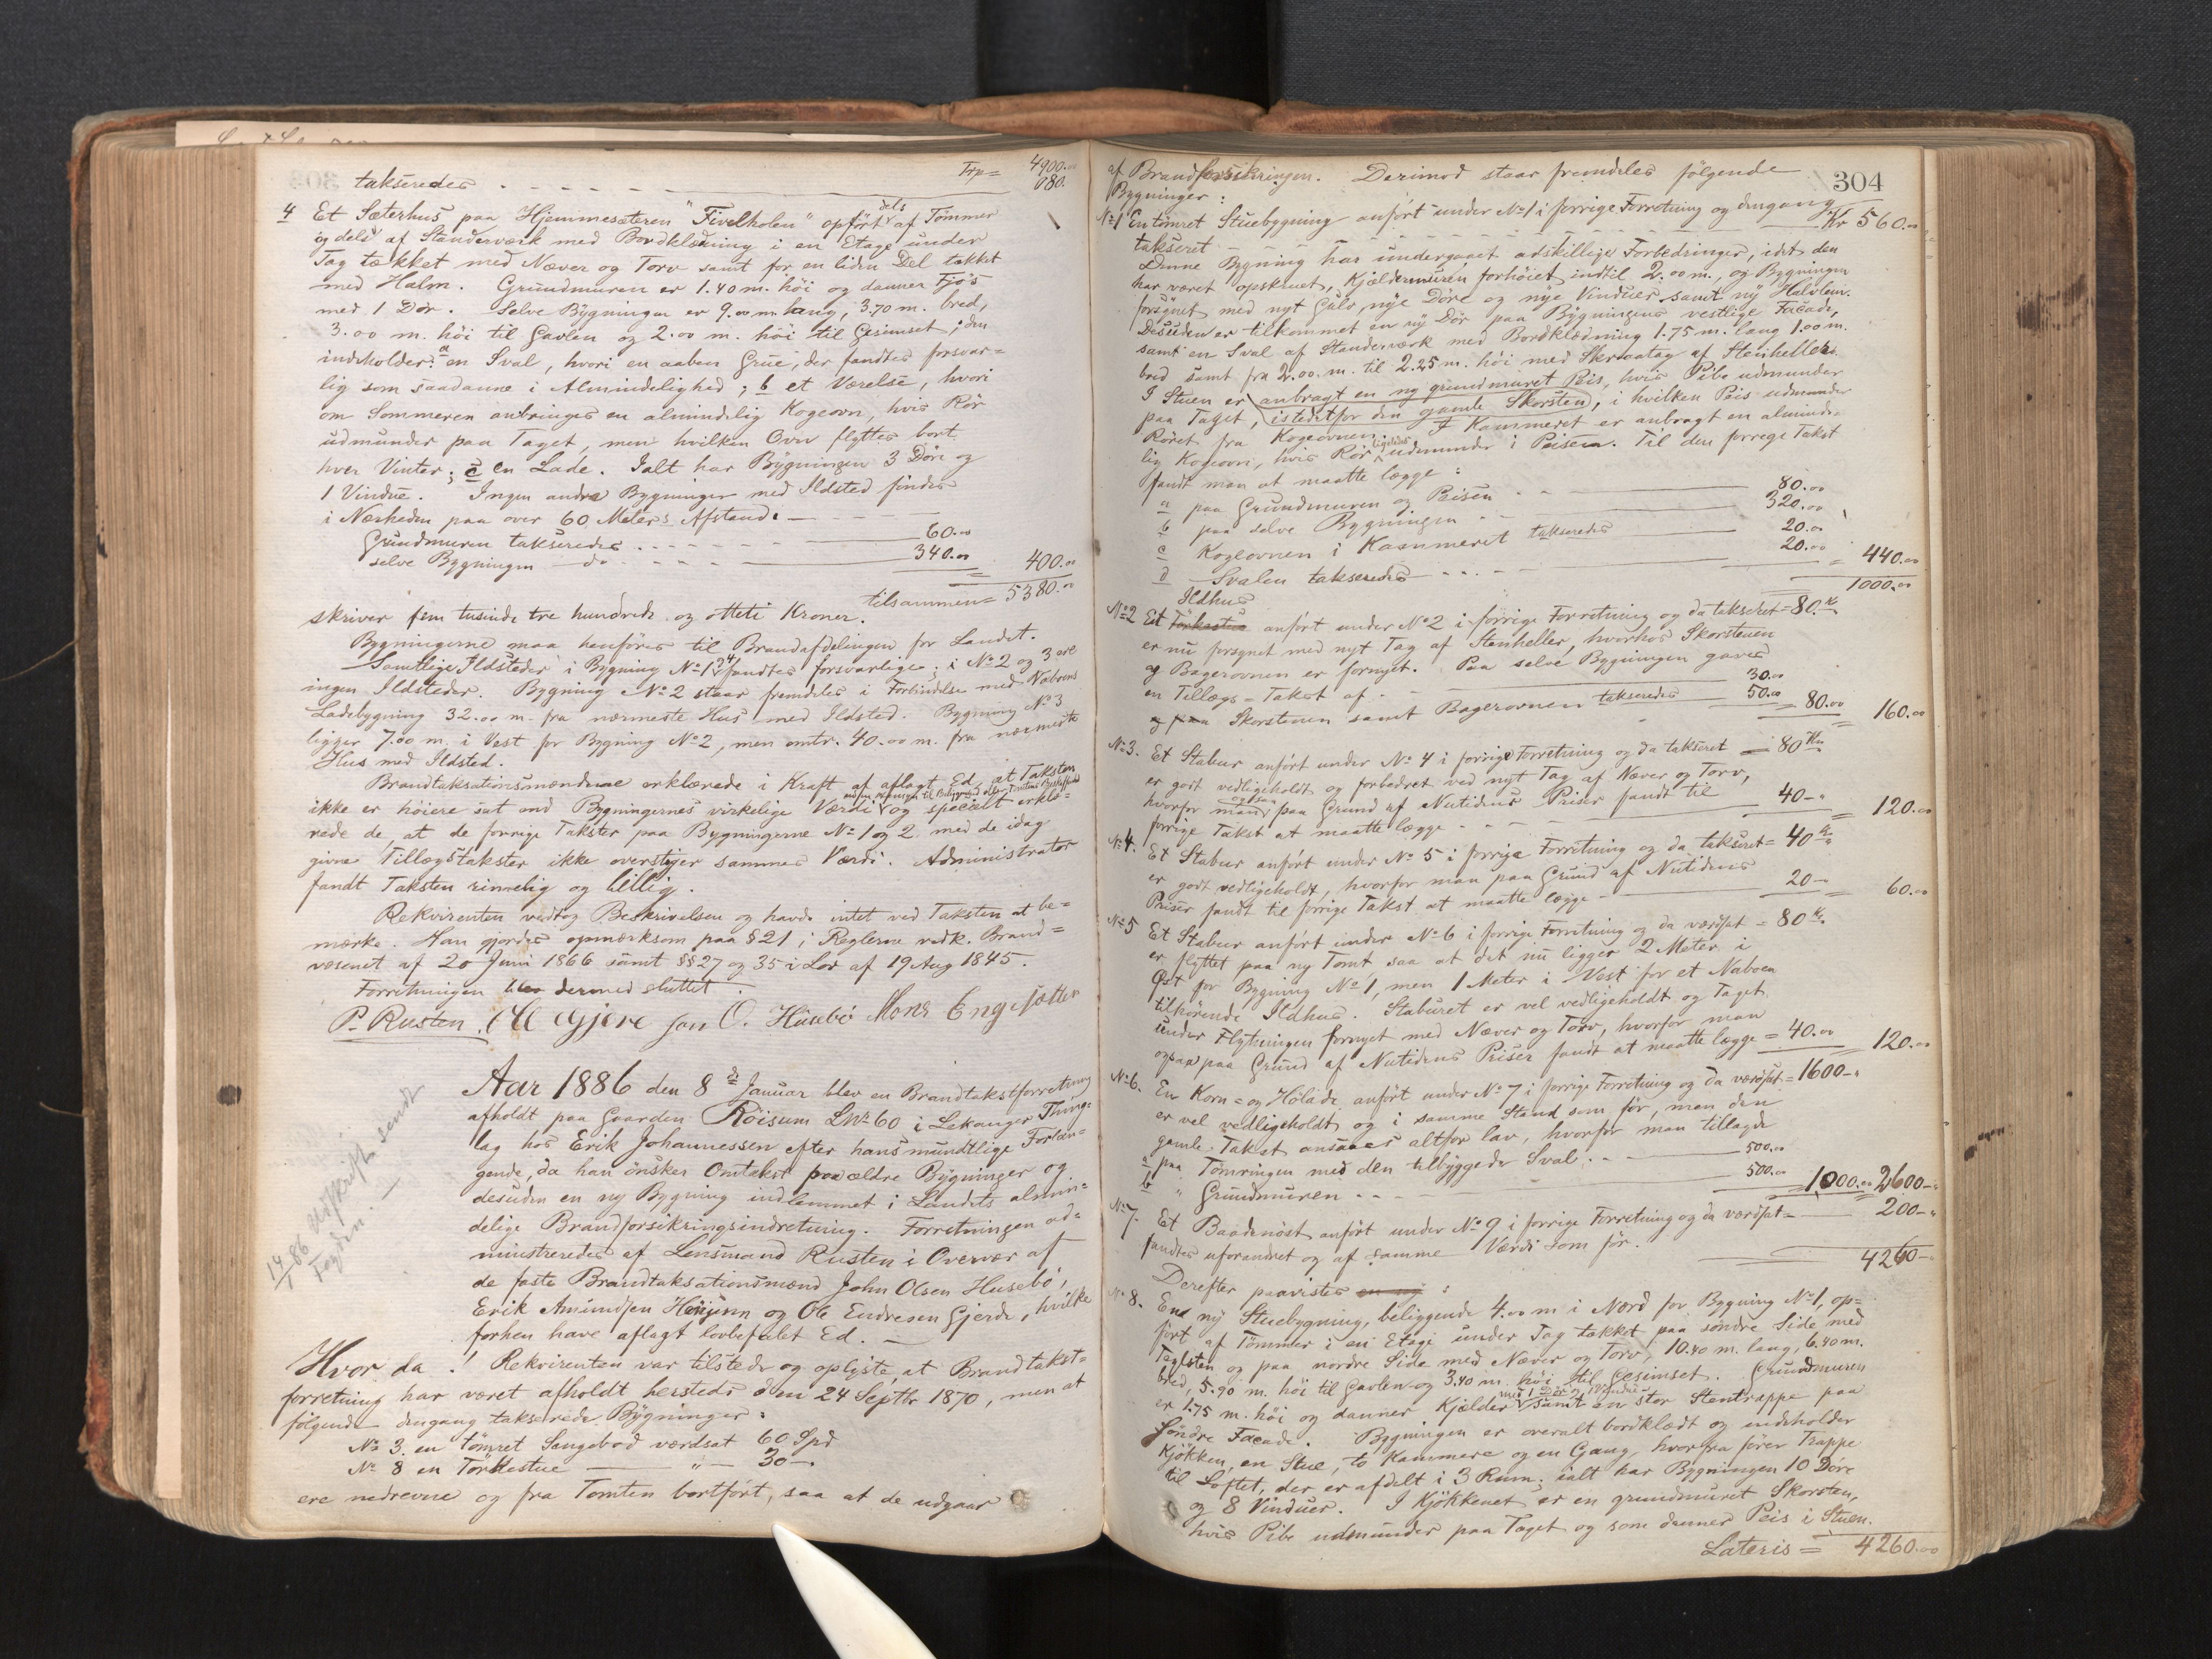 Trp= 4900.00
takseredes - - - - - 080.
4 Et Sæterhus paa Hjemmesæteren "Fivelholen" opført dels af Tømmer
og dels af Standerværk med Bordklædning i en Etage under
Tag tækket med Næver og Torv samt for en liden Del tækket
med Halm. Grundmuren er 1.40 m. høi og danner Fjøs
med 1 Dør. Selve Bygningen er 9.00 m. lang, 3.70 m. bred,
3.00 m. høi til Gavlen og 2.00 m. høi til Gesimset; den
indeholder: a en Sval, hvori en aaben Grue, der fandtes forsvar=
lig som saadanne i Almindelighed; b et Værelse, hvori
om Sommeren anbringes en almindelig Kogeovn, hvis Rør
udmunder paa Taget, men hvilken Ovn flyttes bort
hver Vinter; c en Lade. Ialt har Bygningen 3 Døre og
1 Vindue. Ingen andre Bygninger med Ildsted findes
i Nærheden paa over 60 Meters Afstand. —
Grundmuren takseredes - - - - 60.00
selve Bygningen — do - - - - 340.00 = 400.00
tilsammen = 5380.00
skriver fem tusinde tre hundrede og otteti Kroner.
Bygningerne maa henføres til Brandafdelingen for Landet.
Samtlige Ildsteder i Bygning No 1 & 4 fandtes forsvarlige; i No 2 og 3 ere
ingen Ildsteder. Bygning No 2 staar fremdeles i Forbindelse med Naboens
Ladebygning 32.00 m. fra nærmeste Hus med Ildsted. Bygning No 3
ligger 7.00 m. i Vest for Bygning No 2, men omtr. 40.00 m. fra nærmeste
Hus med Ildsted.
Brandtaksationsmændene erklærede i Kraft af aflagt Ed, at Taksten
ikke er høiere sat end Bygningernes virkelige Værdi uden Hensyn til Beliggenhed eller Tomtens Beskaffenhed og specielt erklæ=
rede de, at de forrige Takster paa Bygningerne No 1 og 2 med de idag
givne Tillægstakster ikke overstiger sammes Værdi. Administrator
fandt Taksten rimelig og billig.
Rekvirenten vedtog Beskrivelsen og havde intet ved Taksten at be=
mærke. Han gjordes opmærksom paa § 21 i Reglerne vedk. Brand=
væsenet af 20 Juni 1866 samt §§ 27 og 35 i Lov af 19 Aug 1845.
Forretningen blev dermed sluttet.
P. Rusten. O E Gjere Jon O. Husebø Mons Engesætter
14/1 86 Udskrift sendt
Fogden. —
Aar 1886 den 8de Januar blev en Brandtakstforretning
afholdt paa Gaarden Røisum Lnr 60 i Lekanger Thing=
lag hos Erik Johannessen efter hans mundtlige Forlan=
gende, da han ønsker Omtakst paa ældre Bygninger og
desuden en ny Bygning indlemmet i Landets almin=
delige Brandforsikringsindretning. Forretningen ad=
ministreredes af Lensmand Rusten i Overvær af
de faste Brandtaksationsmænd John Olsen Husebø,
Erik Amundsen Henjum og Ole Endresen Gjerde, hvilke
forhen have aflagt lovbefalet Ed. —
Hvor da! Rekvirenten var tilstede og oplyste, at Brandtakst=
forretning har været afholdt hersteds den 24 Septbr 1870, men at
følgende dengang takserede Bygninger:
No 3. en tømret Sengebod værdsat 60 Spd
No 8 en Tørkestue —— " — 30 —.
ere nedrevne og fra Tomten bortført, saa at de udgaar
304
af Brandforsikringen. Derimod staar fremdeles følgende
Bygninger:
No 1 En tømret Stuebygning anført under No 1 i forrige Forretning og dengang
takseret - - - - - Kr 560.00
Denne Bygning har undergaaet adskillige Forbedringer, idet den
har været opskruet, Kjældermuren forhøiet indtil 2.00 m., og Bygningen
forsynet med nyt Gulv, nye Døre og nye Vinduer samt ny Halvlem.
Desuden er tilkommet en ny Dør paa Bygningens vestlige Facade,
samt en Sval af Standerværk med Bordklædning 1.75 m. lang 1.00 m.
bred samt fra 2.00 m. til 2.25 m. høi med Skraatag af Stenheller.
I Stuen er anbragt en ny grundmuret Peis, hvis Pibe udmunder
paa Taget, istedetfor den gamle Skorsten, i hvilken Peis udmunder
Røret fra Kogeovnen. I Kammeret er anbragt en alminde=
lig Kogeovn, hvis Rør ligeledes udmunder i Peisen. Til den forrige Takst
fandt man at maatte lægge:
a paa Grundmuren og Peisen - 80.00
b paa selve Bygningen - - 320.00
c Kogeovnen i Kammeret takseredes 20.00
d Svalen takseredes - - - 20.00 = 440.00
1000.00
No 2 Et Ildhus anført under No 2 i forrige Forretning og da takseret = 80 Kr
er nu forsynet med nyt Tag af Stenheller, hvorhos Skorstenen
og Bagerovnen er fornyet. Paa selve Bygningen gaves
en Tillægs-Takst af - - 30.00
og paa Skorstenen samt Bagerovnen takseredes 50.00 = 80.00 160.00
No 3. Et Stabur anført under No 4 i forrige Forretning og da takseret = 80 Kr
er godt vedligeholdt og forbedret ved nyt Tag af Næver og Torv,
hvorfor man ogsaa paa Grund af Nutidens Priser fandt til
forrige Takst at maatte lægge - - - 40 — " = 120.00
No 4. Et Stabur anført under No 5 i forrige Forretning og da takseret = 40 Kr
er godt vedligeholdt, hvorfor man paa Grund af Nutidens
Priser fandt til forrige Takst at maatte lægge — 20 — = 60.00
No 5 Et Stabur anført under No 6 i forrige Forretning og da værdsat = 80 Kr.
er flyttet paa ny Tomt saa at det nu ligger 2 Meter i
Øst for Bygning No 1, men 1 Meter i Vest for et Naboen
tilhørende Ildhus. Staburet er vel vedligeholdt og Taget
under Flytningen fornyet med Næver og Torv, hvorfor man
ogsaa paa Grund af Nutidens Priser fandt at maatte lægge = 40.00 = 120.00
No 6. En Korn= og Hølade anført under No 7 i forrige Forretning og da værdsat = 1600 — "
er vel vedligeholdt og i samme Stand som før, men den
gamle Takst ansaaes altfor lav, hvorfor man tillagde
a paa Tømringen med den tilbyggede Sval - - 500.00
b " Grundmuren - - - 500.00 = 1000.00 2600 — "
No 7. Et Baadenøst anført under No 9 i forrige Forretning og da værdsat = — 200 — "
fandtes uforandret og af samme Værdi som før.
4260 —
Derefter paavistes en ny :
No 8. En ny Stuebygning, beliggende 4.00 m i Nord for Bygning No 1, op=
ført af Tømmer i en Etage under Tag tækket paa søndre Side med
Teglsten og paa nordre Side med Næver og Torv, 10.40 m. lang, 6.40 m.
bred, 5.90 m. høi til Gavlen og 3.40 m. høi til Gesimset. Grundmuren
er 1.75 m. høi og danner Kjælder med 1 Dør og 1 Vindue samt en stor Stentrappe paa
søndre Facade. Bygningen er overalt bordklædt og indeholder
Kjøkken, en Stue, to Kammere og en Gang, hvorfra fører Trappe
til Loftet, der er afdelt i 3 Rum. ialt har Bygningen 10 Døre
og 8 Vinduer. I Kjøkkenet er en grundmuret Skorsten,
hvis Pibe udmunder paa Taget og som danner Peis i Stuen.
Lateris = 4260.00